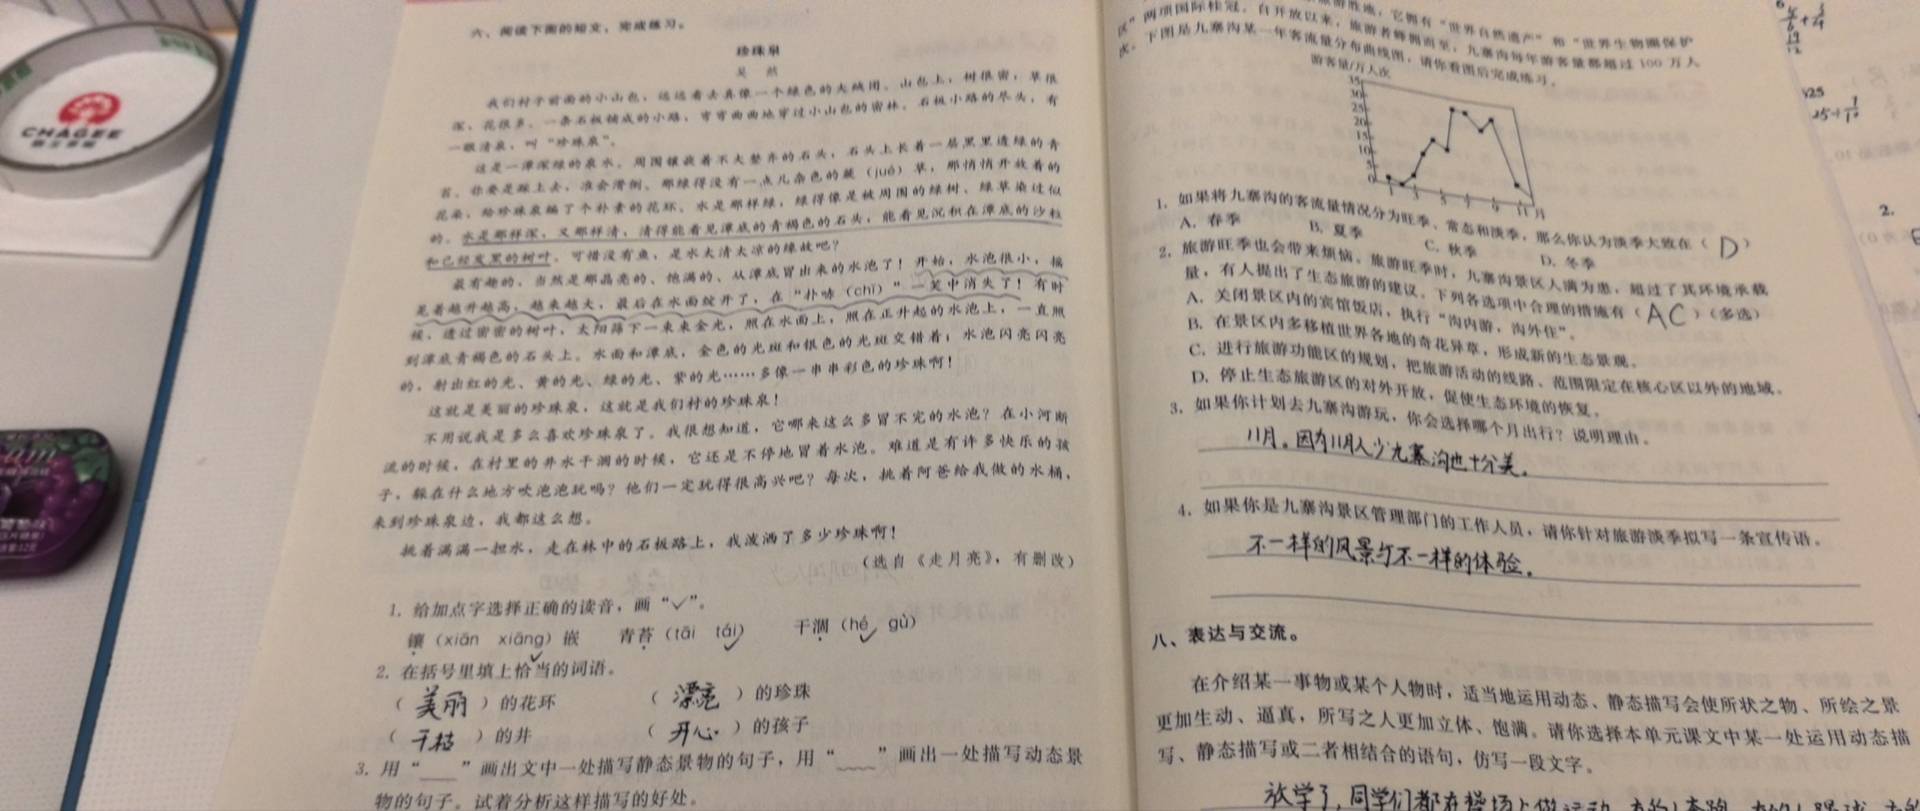 CHAGEE
六、阅读下面的短文，完成练习。
珍珠泉
吴 然
我们村子前面的小山包，远远看去真像一个绿色的大绒团。山包上，树很密，草很
深，花很多。一条石板铺成的小路，弯弯曲曲地穿过小山包的密林。石板小路的尽头，有
一眼清泉，叫“珍珠泉”。
这是一潭深绿的泉水。周围镶嵌着不大整齐的石头，石头上长着一层黑里透绿的青
苔，你要是踩上去，准会滑倒。那绿得没有一点儿杂色的蕨（jué）草，那悄悄开放着的
花朵，给珍珠泉编了个朴素的花环。水是那样绿，绿得像是被周围的绿树、绿草染过似
的。水是那样深，又那样清，清得能看见潭底的青褐色的石头，能看见沉积在潭底的沙粒
和已经发黑的树叶。可惜没有鱼，是水太清太凉的缘故吧？
最有趣的，当然是那晶亮的、饱满的、从潭底冒出来的水泡了！开始，水泡很小，摇
晃着越升越高，越来越大，最后在水面绽开了，在“扑哧（chī）”一笑中消失了！有时
候，透过密密的树叶，太阳筛下一束束金光，照在水面上，照在正升起的水泡上，一直照
到潭底青褐色的石头上。水面和潭底，金色的光斑和银色的光斑交错着；水泡闪亮闪亮
的，射出红的光、黄的光、绿的光、紫的光……多像一串串彩色的珍珠啊！
这就是美丽的珍珠泉，这就是我们村的珍珠泉！
不用说我是多么喜欢珍珠泉了。我很想知道，它哪来这么多冒不完的水泡？在小河断
流的时候，在村里的井水干涸的时候，它还是不停地冒着水泡。难道是有许多快乐的孩
子，躲在什么地方吹泡泡玩吗？他们一定玩得很高兴吧？每次，挑着阿爸给我做的水桶，
来到珍珠泉边，我都这么想。
挑着满满一担水，走在林中的石板路上，我泼洒了多少珍珠啊！
（选自《走月亮》，有删改）
1. 给加点字选择正确的读音，画“✓”。
镶（xiān xiāng）嵌 青苔（tāi tái） 干涸（hé gù）
2. 在括号里填上恰当的词语。
（美丽）的花环 （漂亮）的珍珠
（干枯）的井 （开心）的孩子
3. 用“___”画出文中一处描写静态景物的句子，用“﹏﹏”画出一处描写动态景
物的句子。试着分析这样描写的好处。
旅游胜地，它拥有“世界自然遗产”和“世界生物圈保护
区”两项国际桂冠。自开放以来，旅游者蜂拥而至，九寨沟每年游客量都超过100万人
次。下图是九寨沟某一年客流量分布曲线图，请你看图后完成练习。
游客量/万人次
35
30
25
20
15
10
5
0
1 3 5 7 9 11 月
1. 如果将九寨沟的客流量情况分为旺季、常态和淡季，那么你认为淡季大致在（D）
A. 春季 B. 夏季 C. 秋季 D. 冬季
2. 旅游旺季也会带来烦恼。旅游旺季时，九寨沟景区人满为患，超过了其环境承载
量，有人提出了生态旅游的建议。下列各选项中合理的措施有（AC）（多选）
A. 关闭景区内的宾馆饭店，执行“沟内游，沟外住”。
B. 在景区内多移植世界各地的奇花异草，形成新的生态景观。
C. 进行旅游功能区的规划，把旅游活动的线路、范围限定在核心区以外的地域。
D. 停止生态旅游区的对外开放，促使生态环境的恢复。
3. 如果你计划去九寨沟游玩，你会选择哪个月出行？说明理由。
11月。因为11月人少九寨沟也十分美。
4. 如果你是九寨沟景区管理部门的工作人员，请你针对旅游淡季拟写一条宣传语。
不一样的风景 不一样的体验。
八、表达与交流。
在介绍某一事物或某个人物时，适当地运用动态、静态描写会使所状之物、所绘之景
更加生动、逼真，所写之人更加立体、饱满。请你选择本单元课文中某一处运用动态描
写、静态描写或二者相结合的语句，仿写一段文字。
放学了，同学们都在操场上做运动
2.